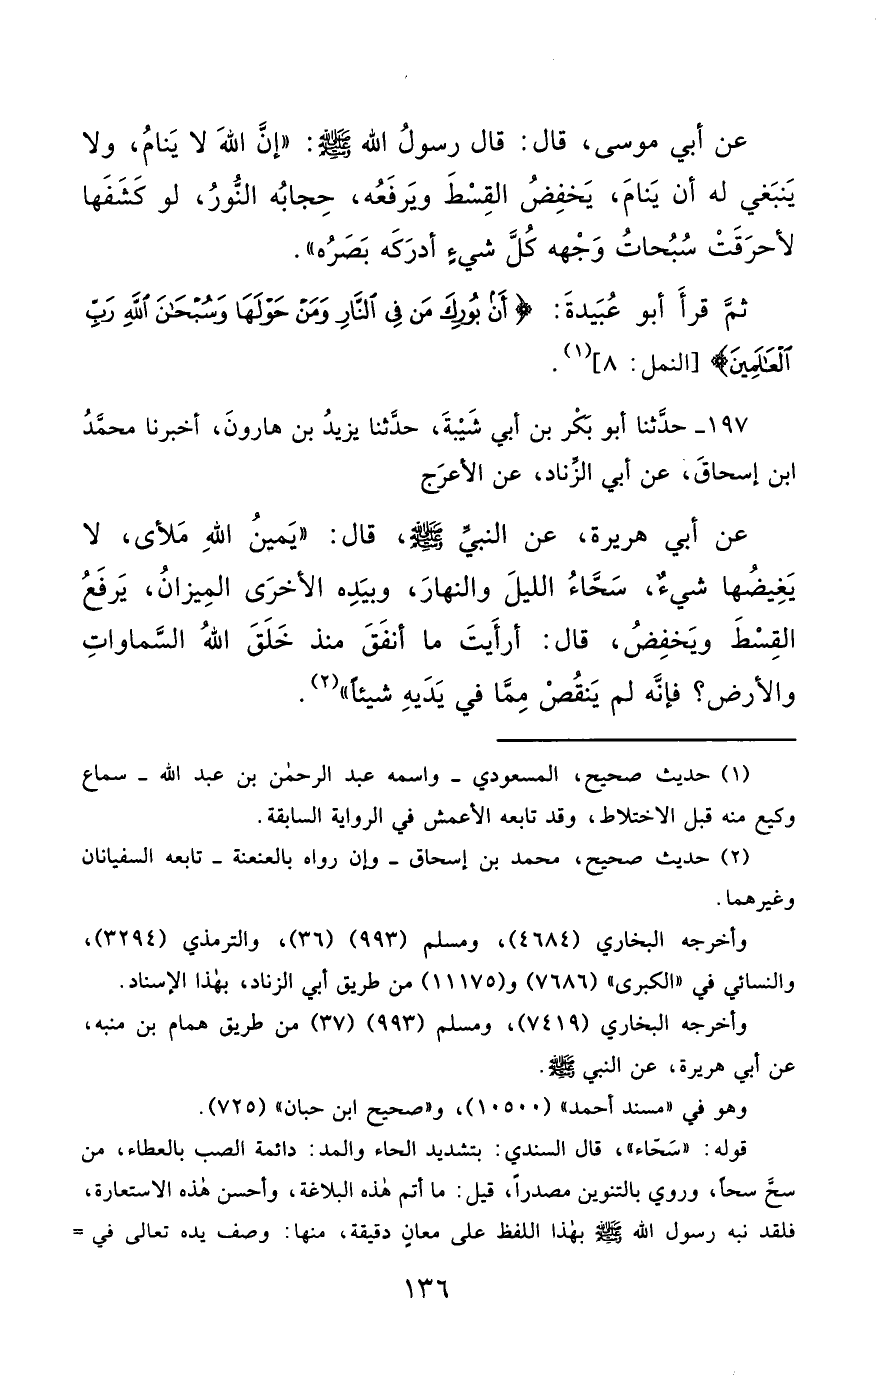 عن أبي موسى، قال: قال رسولُ الله ﷺ: «إنَّ اللهَ لا يَنامُ، ولا
يَنبَغي له أن يَنامَ، يَخفِضُ القِسْطَ ويَرفَعُه، حِجابُه النُّورُ، لو كَشَفَها
لأحرَقَتْ سُبُحاتُ وَجْهه كُلَّ شيءٍ أدرَكَه بَصَرُه».
ثمَّ قرأَ أبو عُبَيدةَ: ﴿أَنۢ بُورِكَ مَن فِي ٱلنَّارِ وَمَنۡ حَوۡلَهَا وَسُبۡحَٰنَ ٱللَّهِ رَبِّ
ٱلۡعَٰلَمِينَ﴾ [النمل: ٨](١).
١٩٧ـ حدَّثنا أبو بَكْر بن أبي شَيْبةَ، حدَّثنا يزيدُ بن هارونَ، أخبرنا محمَّدُ
ابن إسحاقَ، عن أبي الزِّناد، عن الأعرَج
عن أبي هريرة، عن النبيِّ ﷺ، قال: «يَمينُ اللهِ مَلأى، لا
يَغِيضُها شيءٌ، سَحَّاءُ الليلَ والنهارَ، وبيَدِه الأخرَى المِيزانُ، يَرفَعُ
القِسْطَ ويَخفِضُ، قال: أرأَيتَ ما أنفَقَ منذ خَلَقَ اللهُ السَّماواتِ
والأرض؟ فإنَّه لم يَنقُصْ مِمَّا في يَدَيهِ شيئاً»(٢).
(١) حديث صحيح، المسعودي ـ واسمه عبد الرحمٰن بن عبد الله ـ سماع
وكيع منه قبل الاختلاط، وقد تابعه الأعمش في الرواية السابقة.
(٢) حديث صحيح، محمد بن إسحاق ـ وإن رواه بالعنعنة ـ تابعه السفيانان
وغيرهما.
وأخرجه البخاري (٤٦٨٤)، ومسلم (٩٩٣) (٣٦)، والترمذي (٣٢٩٤)،
والنسائي في «الكبرى» (٧٦٨٦) و(١١١٧٥) من طريق أبي الزناد، بهٰذا الإسناد.
وأخرجه البخاري (٧٤١٩)، ومسلم (٩٩٣) (٣٧) من طريق همام بن منبه،
عن أبي هريرة، عن النبي ﷺ.
وهو في «مسند أحمد» (١٠٥٠٠)، و«صحيح ابن حبان» (٧٢٥).
قوله: «سَحّاء»، قال السندي: بتشديد الحاء والمد: دائمة الصب بالعطاء، من
سحَّ سحاً، وروي بالتنوين مصدراً، قيل: ما أتم هٰذه البلاغة، وأحسن هٰذه الاستعارة،
فلقد نبه رسول الله ﷺ بهٰذا اللفظ على معانٍ دقيقة، منها: وصف يده تعالى في =
١٣٦